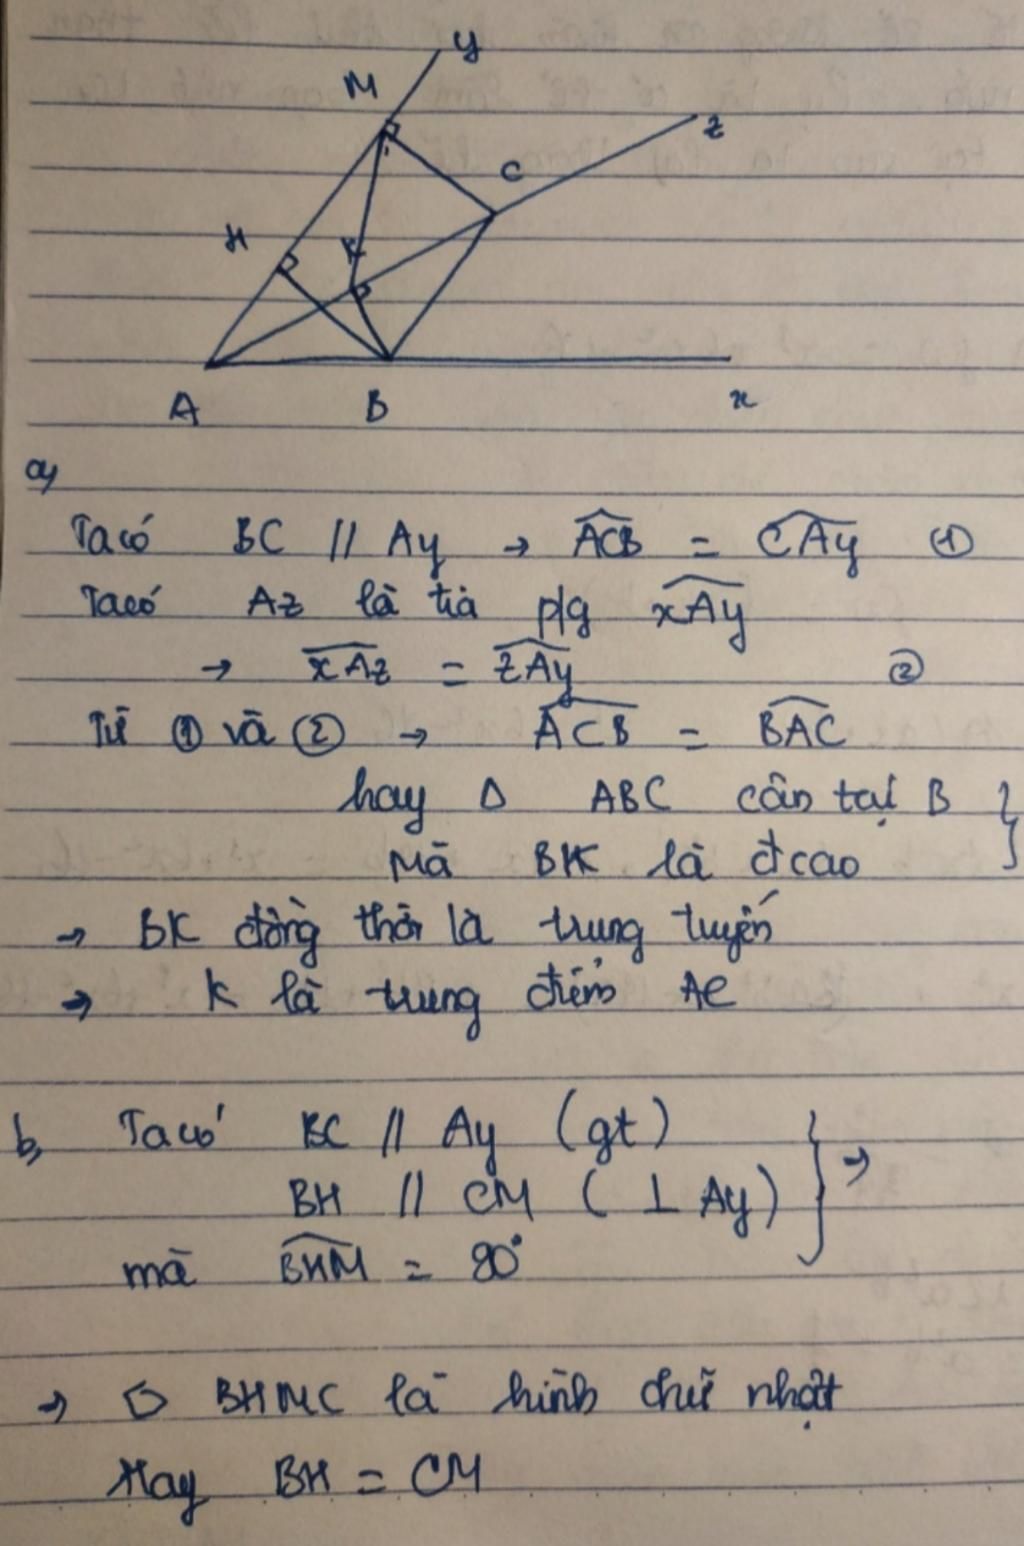 y
M
z
C
H
K
A B x
a,
Ta có BC // Ay → ACB = CAy ①
Ta có Az là tia p/g xAy
→ xAz = zAy ②
Từ ① và ② → ACB = BAC
hay Δ ABC cân tại B }
Mà BK là đcao
→ BK đồng thời là trung tuyến
→ K là trung điểm AC
b, Ta có BC // Ay (gt) } →
BH // CM ( ⊥ Ay)
mà BHM = 90°
→ ▱ BHMC là hình chữ nhật
Hay BH = CM